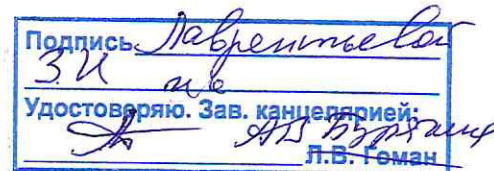 Подпись Лаврентьевой
З.И
Удостоверяю. Зав. канцелярией:
Л.В. Гоман